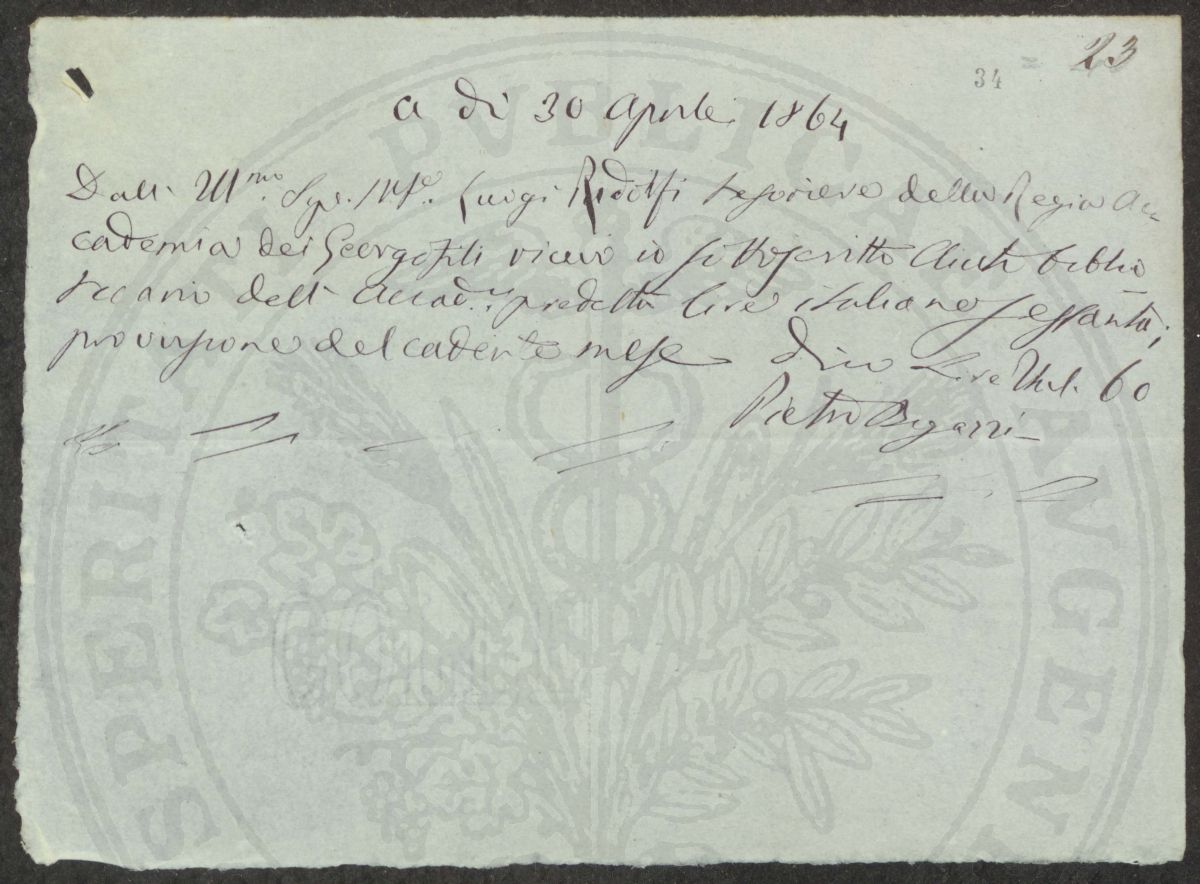 23
34
a dì 30 Aprile 1864
Dall' Ill.mo Sig. M.se Luigi Ridolfi tesoriere della Regia Ac
cademia dei Georgofili ricevo io sottoscritto Aiuto biblio
tecario dell' Accad.a predetta lire italiane sessanta,
provvisione del cadente mese dico Lire Ital. 60
Pietro Bigazzi
PVBLICAE
PROSPERITATI
AVGEN